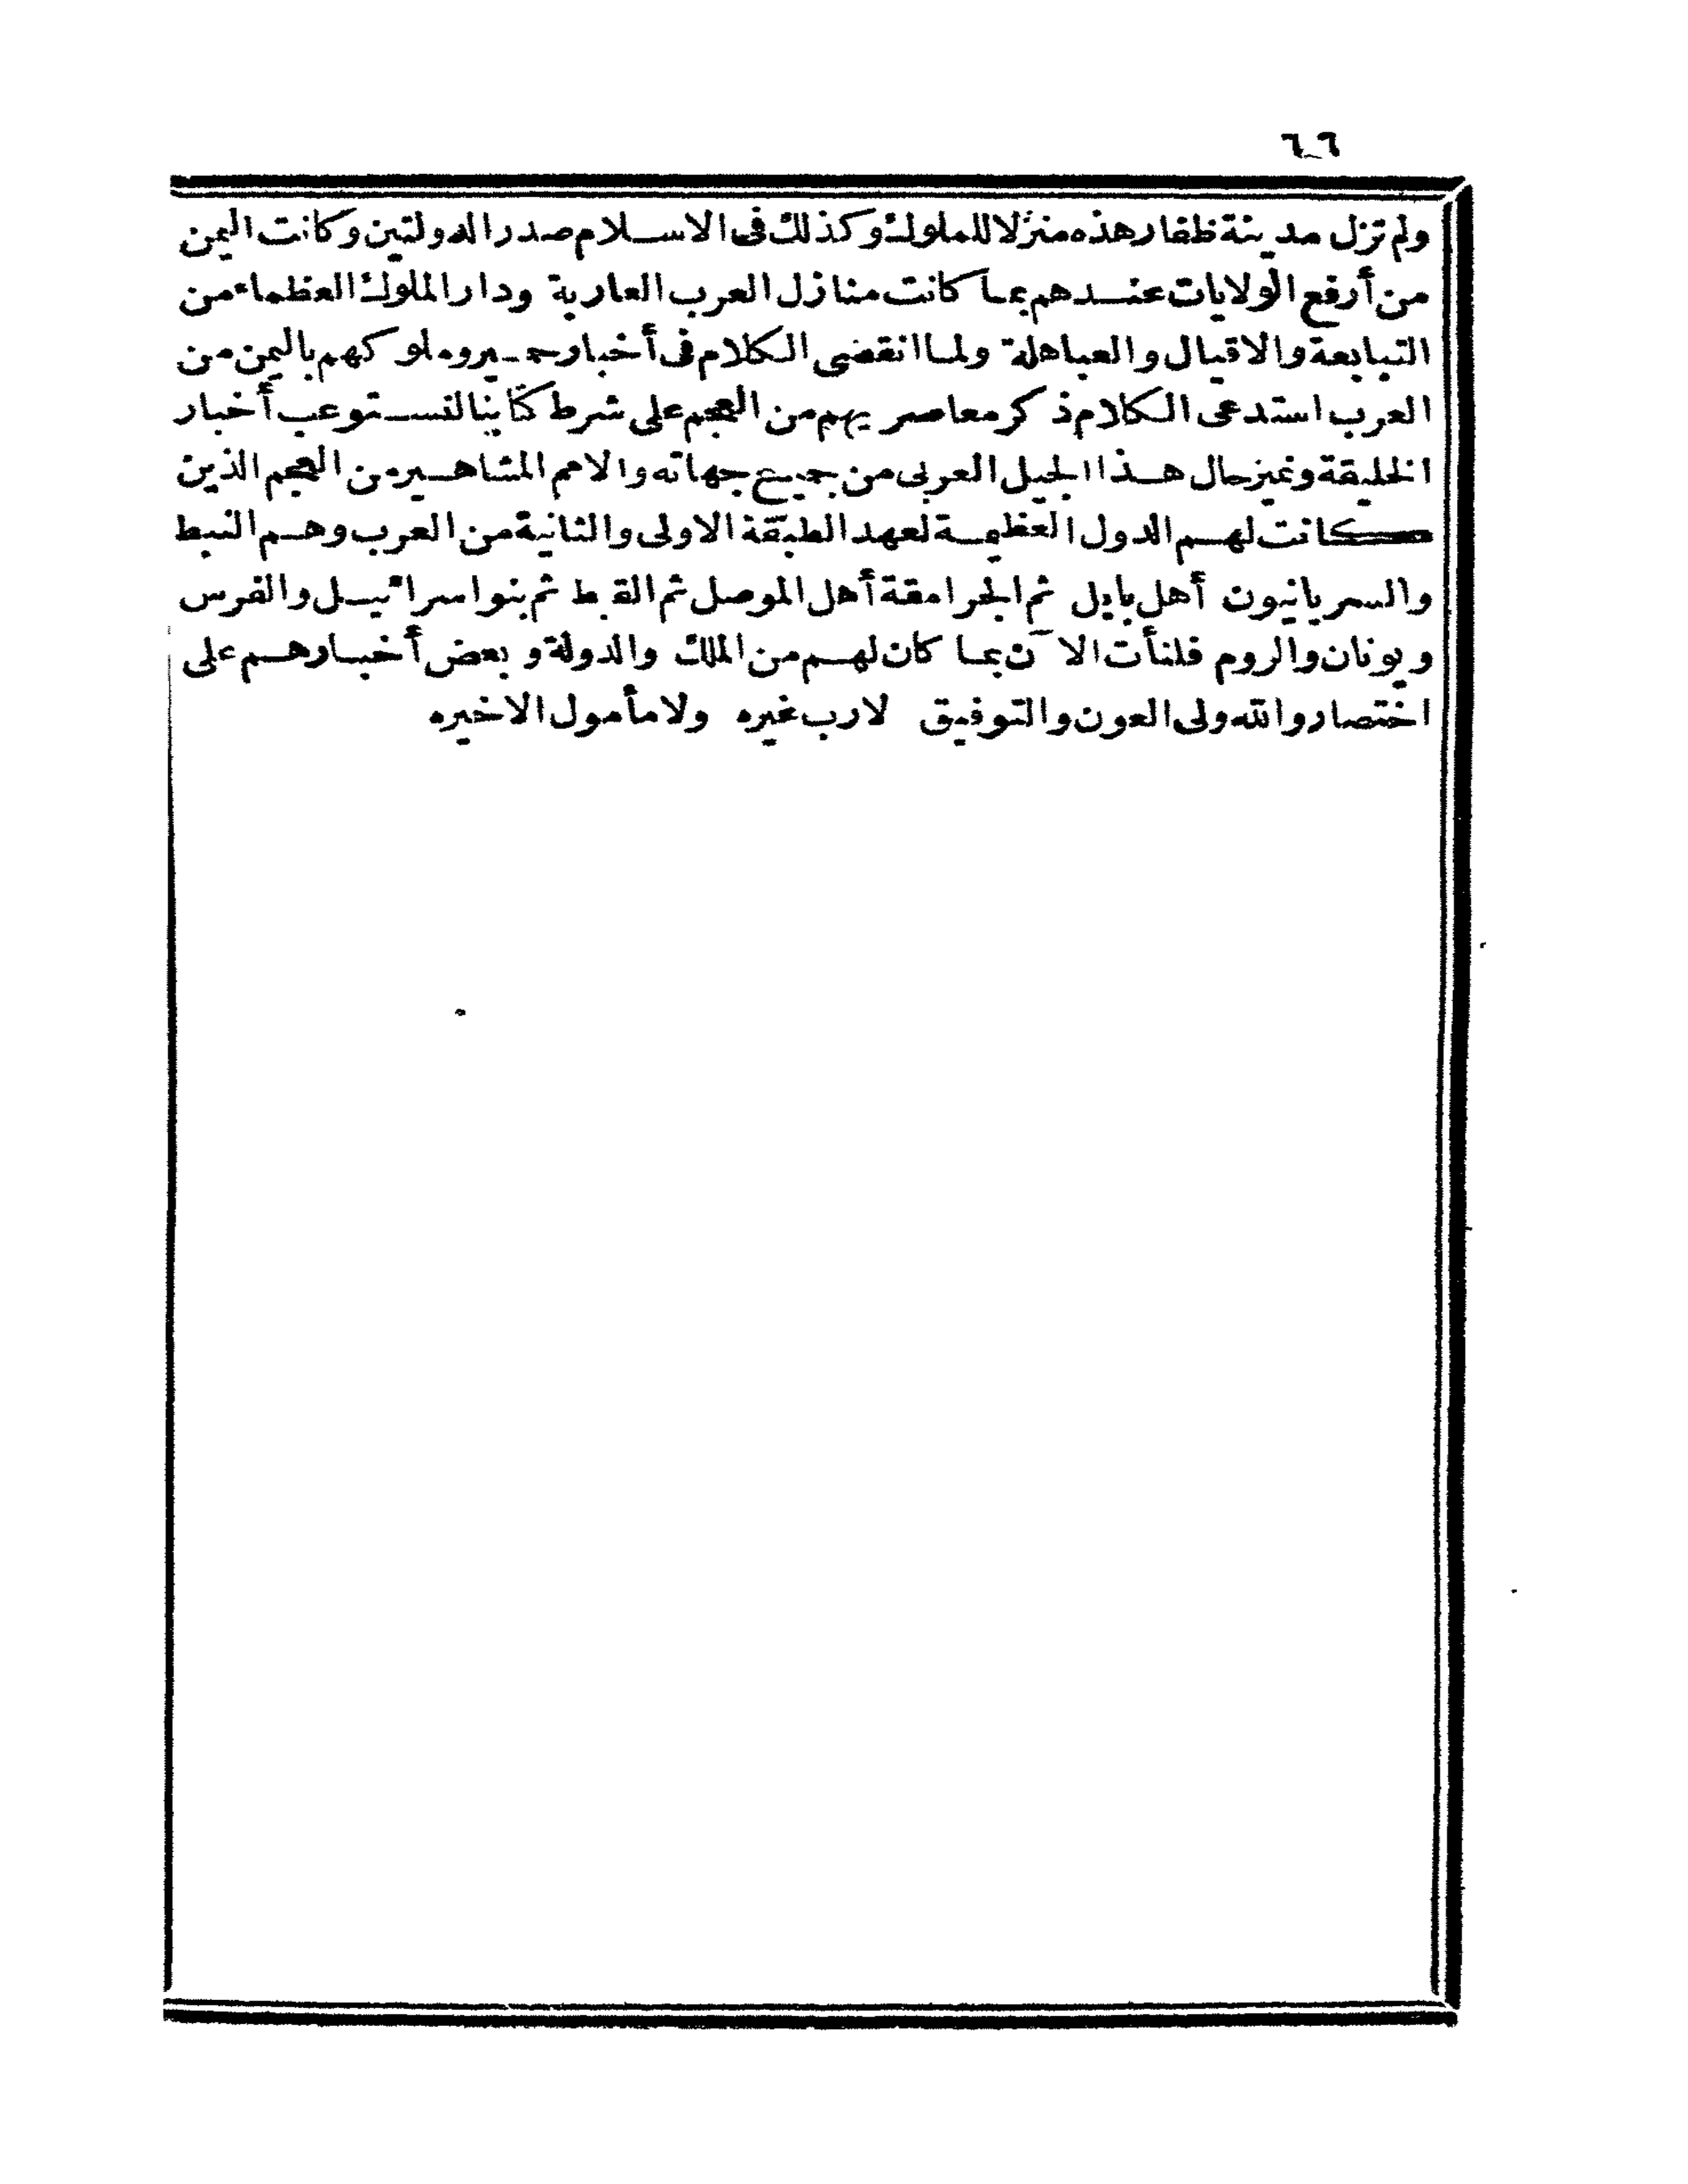 ٦٦
ولم تزل مدينة ظفار هذه منزلا للملوك وكذلك فى الاسلام صدر الدولتين وكانت اليمن
من أرفع الولايات عندهم بما كانت منازل العرب العاربة ودار الملوك العظماء من
التبابعة والاقيال والعباهلة ولما انقضى الكلام فى أخبار حمير وملوكهم باليمن من
العرب استدعى الكلام ذكر معاصريهم من العجم على شرط كتابنا لنستوعب أخبار
الخليقة ونميز حال هذا الجيل العربى من جميع جهاته والامم المشاهير من العجم الذين
كانت لهم الدول العظيمة لعهد الطبقة الاولى والثانية من العرب وهم النبط
والسريانيون أهل بابل ثم الجرامقة أهل الموصل ثم القبط ثم بنو اسرائيل والفرس
ويونان والروم فلنأت الآن بما كان لهم من الملك والدولة وبعض أخبارهم على
اختصار والله ولى العون والتوفيق لا رب غيره ولا مأمول الا خيره